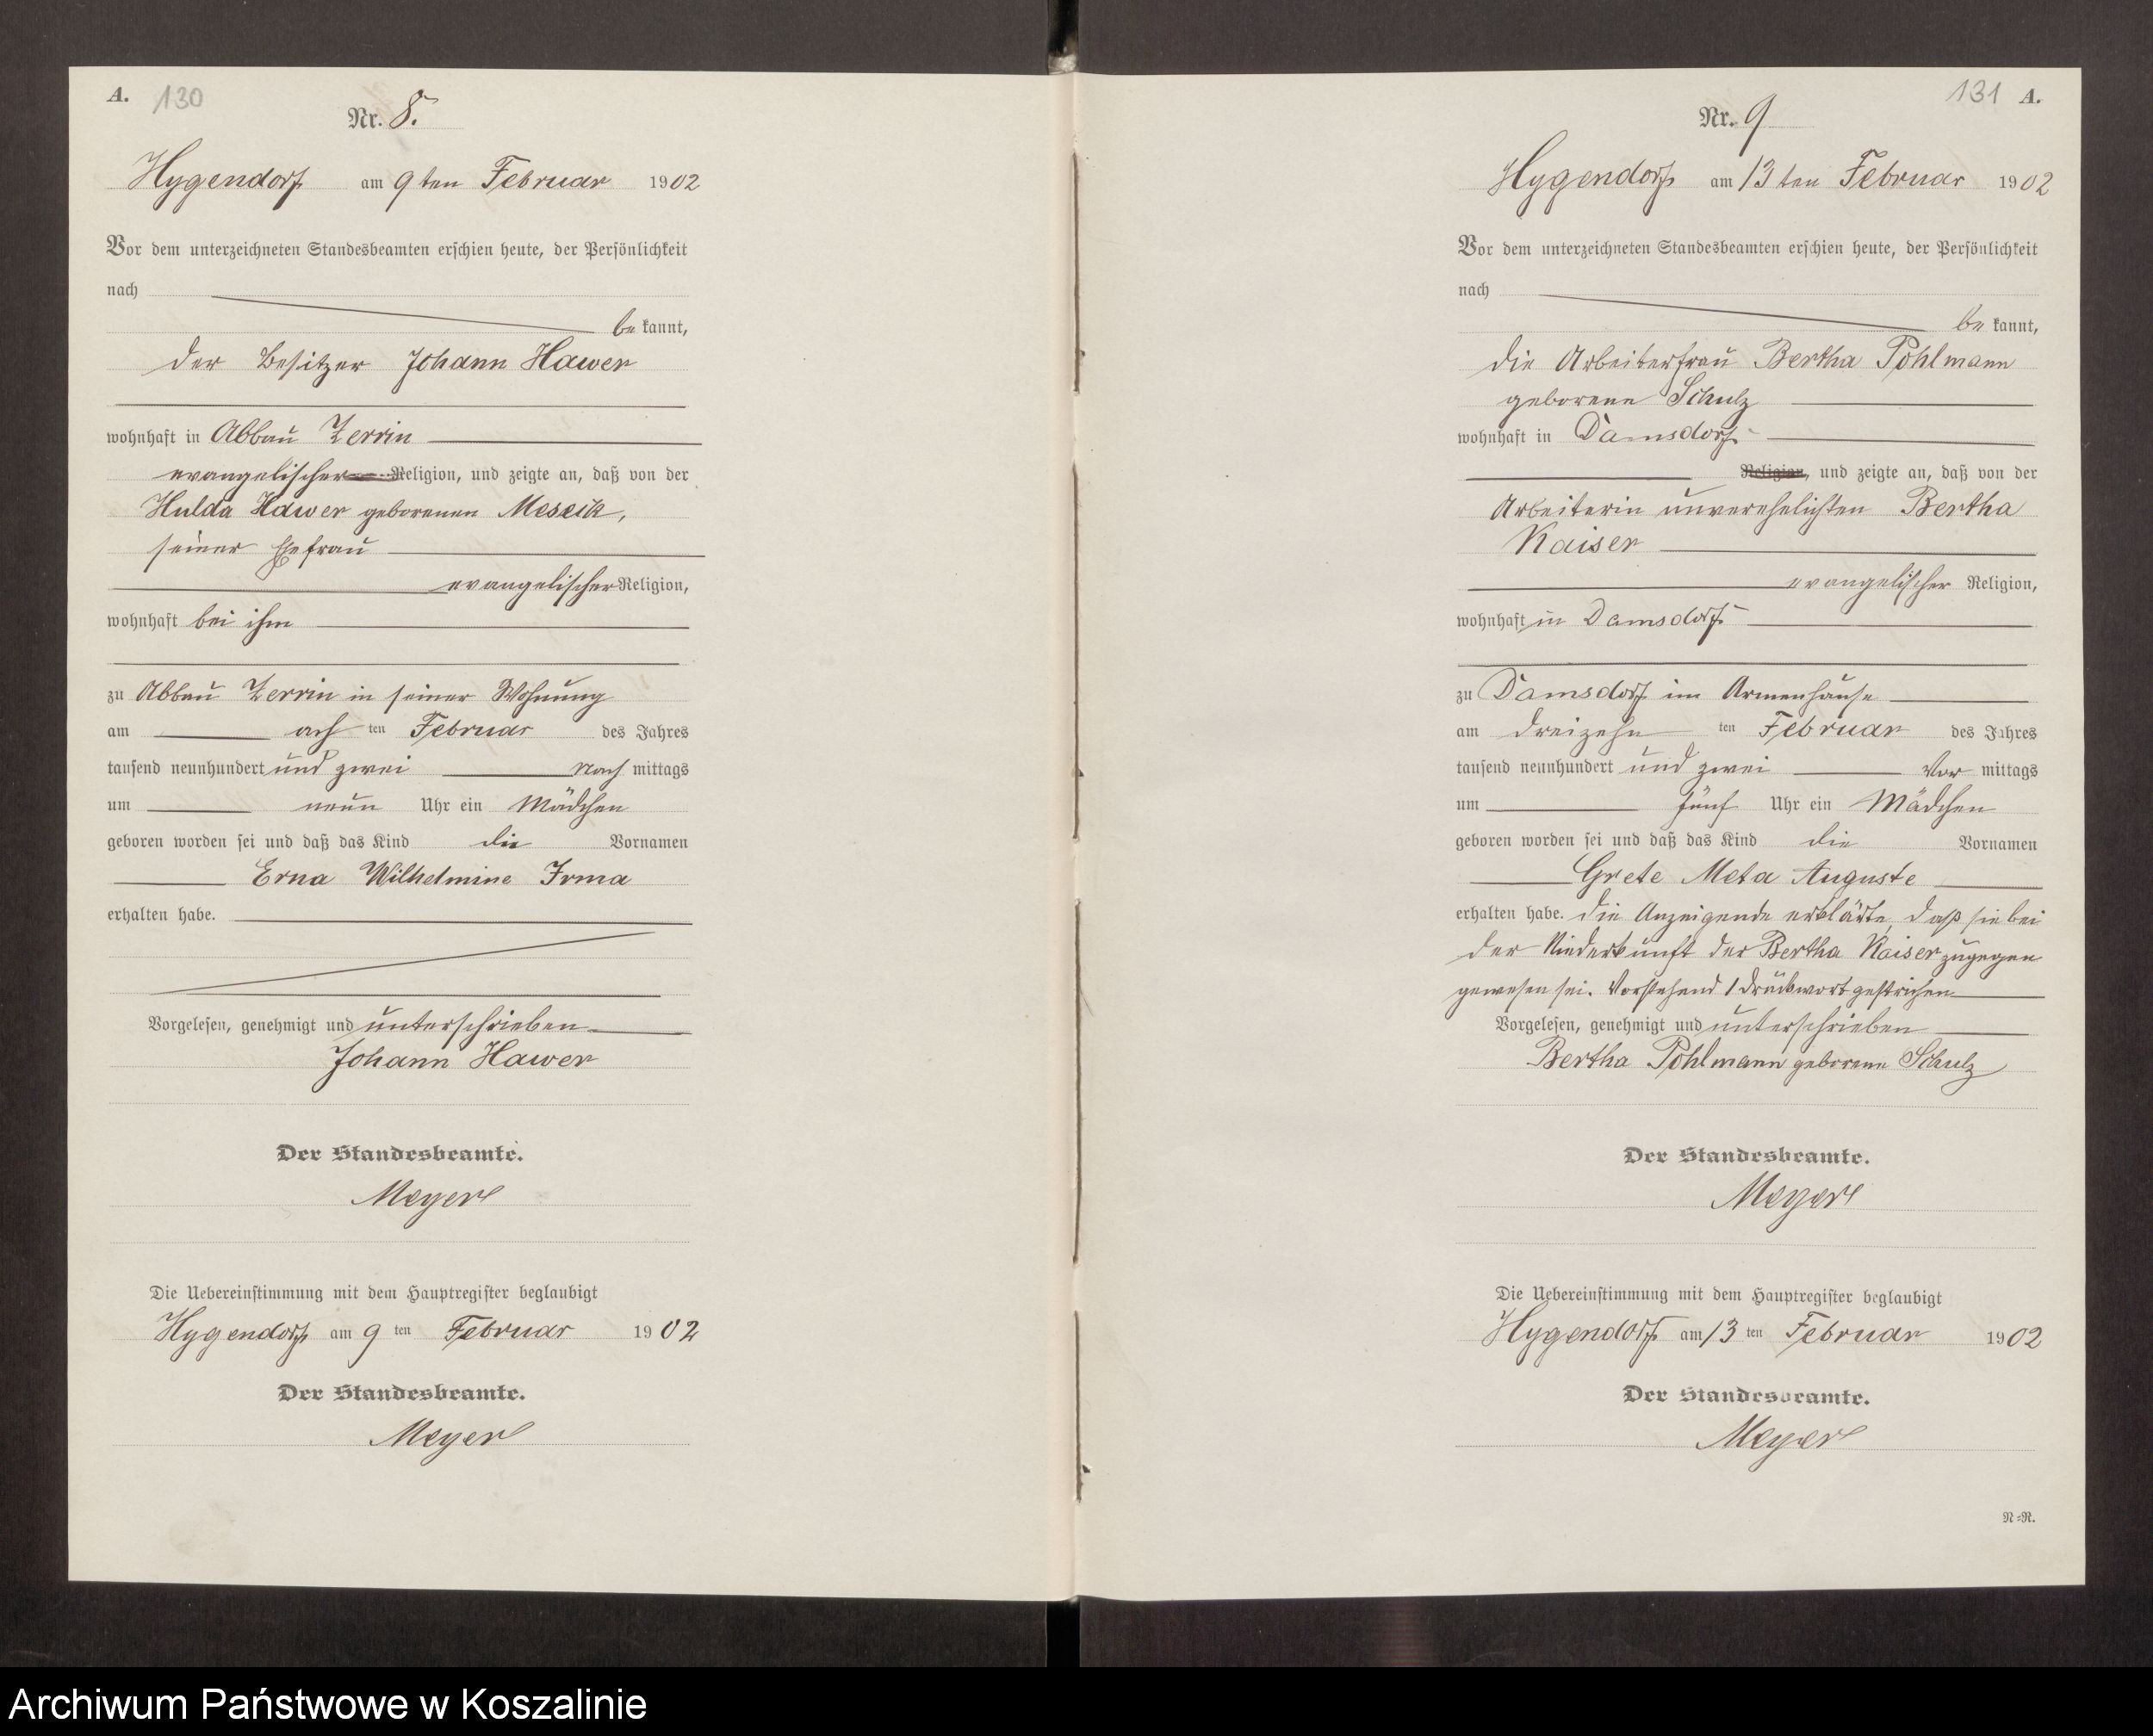 A. 130
Nr. 8.
Hygendorf am 9ten Februar 1902
Vor dem unterzeichneten Standesbeamten erschien heute, der Persönlichkeit
nach
be kannt,
der Besitzer Johann Hawer
wohnhaft in Abbau Zerrin
evangelischer Religion, und zeigte an, daß von der
Hulda Hawer geborenen,
seiner Ehefrau
evangelischer Religion,
wohnhaft bei ihm
zu Abbau Zerrin in seiner Wohnung
am ach ten Februar des Jahres
tausend neunhundert und zwei Nach mittags
um neun Uhr ein Mädchen
geboren worden sei und daß das Kind die Vornamen
Erna Wilhelmine Irma
erhalten habe.
Vorgelesen, genehmigt und unterschrieben
Johann Hawer
Der Standesbeamte.
Meyer
Die Uebereinstimmung mit dem Hauptregister beglaubigt
Hygendorf am 9 ten Februar 1902
Der Standesbeamte.
Meyer
131 A.
Nr. 9
Hygendorf am 13ten Februar 1902
Vor dem unterzeichneten Standesbeamten erschien heute, der Persönlichkeit
nach
be kannt,
die Arbeiterfrau Bertha Pohlmann
geborene Schulz
wohnhaft in Damsdorf
Religion, und zeigte an, daß von der
Arbeiterin unverehelichten Bertha
Kaiser
evangelischer Religion,
wohnhaft in Damsdorf
zu Damsdorf im Armenhause
am dreizehn ten Februar des Jahres
tausend neunhundert und zwei Vor mittags
um fünf Uhr ein Mädchen
geboren worden sei und daß das Kind die Vornamen
Grete Meta Auguste
erhalten habe. Die Anzeigende erklärte, daß sie bei
der Niederkunft der Bertha Kaiser zugegen
gewesen sei. Vorstehend 1 Druckwort gestrichen
Vorgelesen, genehmigt und unterschrieben
Bertha Pohlmann geborene Schulz
Der Standesbeamte.
Meyer
Die Uebereinstimmung mit dem Hauptregister beglaubigt
Hygendorf am 13 ten Februar 1902
Der Standesbeamte.
Meyer
N=R.
Archiwum Państwowe w Koszalinie